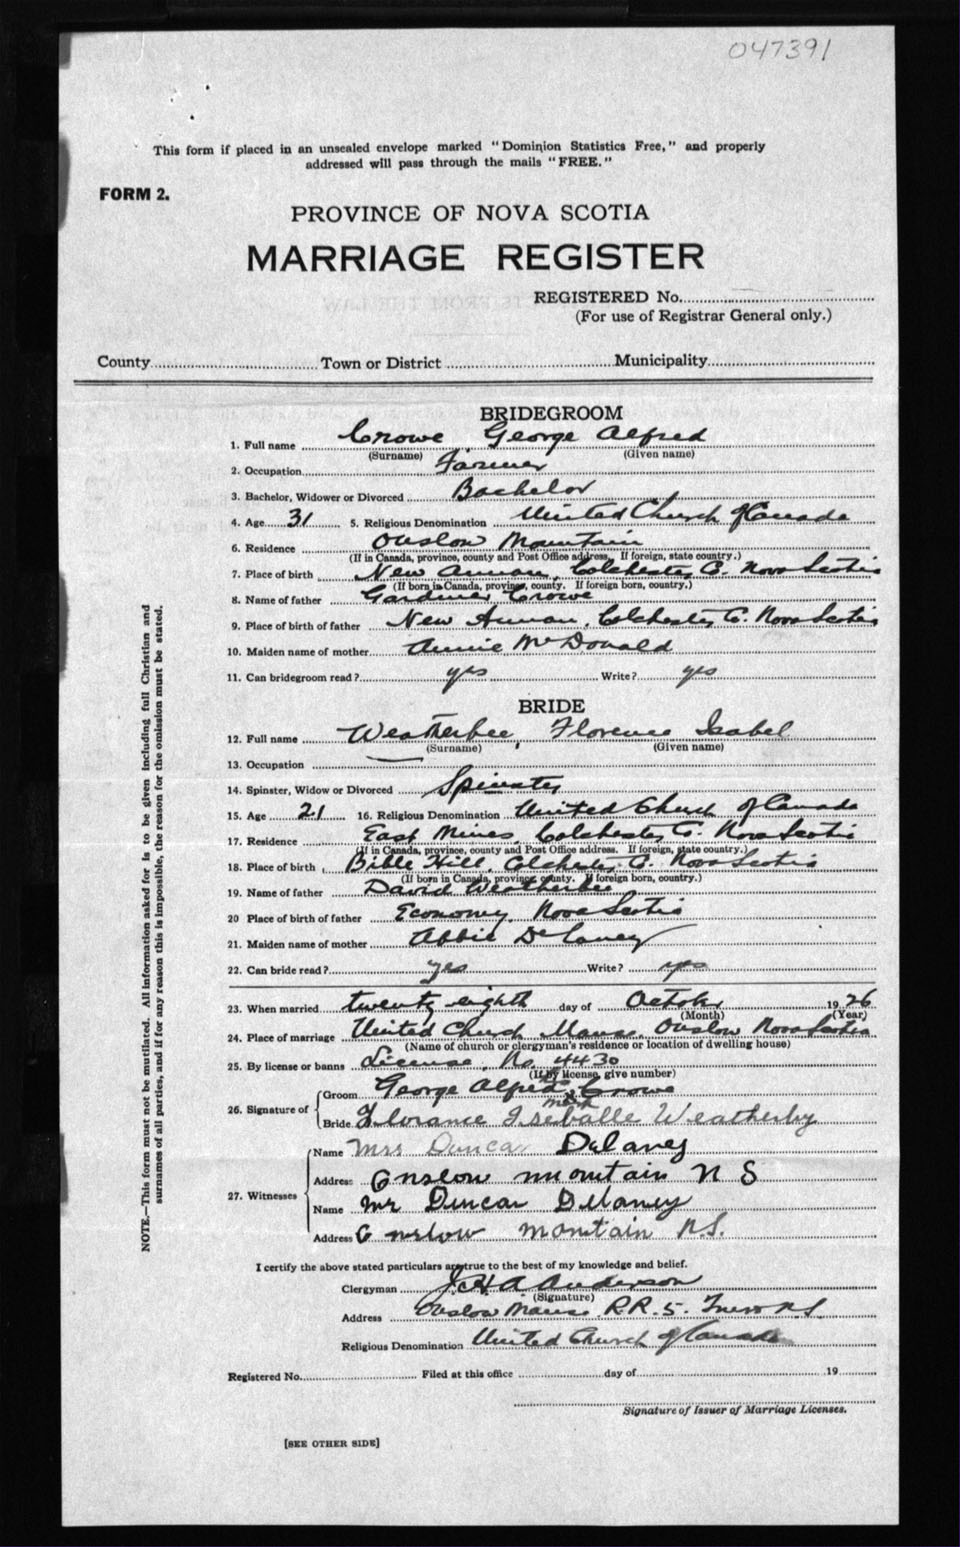 047391
This form if placed in an unsealed envelope marked "Dominion Statistics Free," and properly
addressed will pass through the mails "FREE."
FORM 2.
PROVINCE OF NOVA SCOTIA
MARRIAGE REGISTER
REGISTERED No.
(For use of Registrar General only.)
County Town or District Municipality
BRIDEGROOM
1. Full name Crowe George Alfred
(Surname) (Given name)
2. Occupation Farmer
3. Bachelor, Widower or Divorced Bachelor
4. Age 31 5. Religious Denomination United Church of Canada
6. Residence Onslow Mountain
(If in Canada, province, county and Post Office address. If foreign, state country.)
7. Place of birth New Annan, Colchester Co. Nova Scotia
(If born in Canada, province, county. If foreign born, country.)
8. Name of father Gardner Crowe
9. Place of birth of father New Annan, Colchester Co. Nova Scotia
10. Maiden name of mother Annie McDonald
11. Can bridegroom read? yes Write? yes
BRIDE
12. Full name Weatherbee, Florence Isabel
(Surname) (Given name)
13. Occupation —
14. Spinster, Widow or Divorced Spinster
15. Age 21 16. Religious Denomination United Church of Canada
17. Residence East Mines, Colchester Co. Nova Scotia
(If in Canada, province, county and Post Office address. If foreign, state country.)
18. Place of birth Bible Hill, Colchester Co. Nova Scotia
(If born in Canada, province, county. If foreign born, country.)
19. Name of father David Weatherbee
20 Place of birth of father Economy, Nova Scotia
21. Maiden name of mother Abbie Delaney
22. Can bride read? yes Write? yes
23. When married twenty eighth day of October 1926
(Month) (Year)
24. Place of marriage United Church Manse, Onslow Nova Scotia
(Name of church or clergyman's residence or location of dwelling house)
25. By license or banns License, No. 4430
(If by license, give number)
26. Signature of Groom George Alfred his x Crowe
mark
Bride Florance Iseballe Weatherby
27. Witnesses Name Mrs Duncan Delaney
Address Onslow mountain N S
Name Mr Duncan Delaney
Address Onslow mountain N.S.
I certify the above stated particulars are true to the best of my knowledge and belief.
Clergyman J.H.A. Anderson
(Signature)
Address Onslow Manse R.R. 5. Truro N.S.
Religious Denomination United Church of Canada
Registered No. Filed at this office day of 19
Signature of Issuer of Marriage Licenses.
[SEE OTHER SIDE]
NOTE.—This form must not be mutilated. All information asked for is to be given including full Christian and
surnames of all parties, and if for any reason this is impossible, the reason for the omission must be stated.